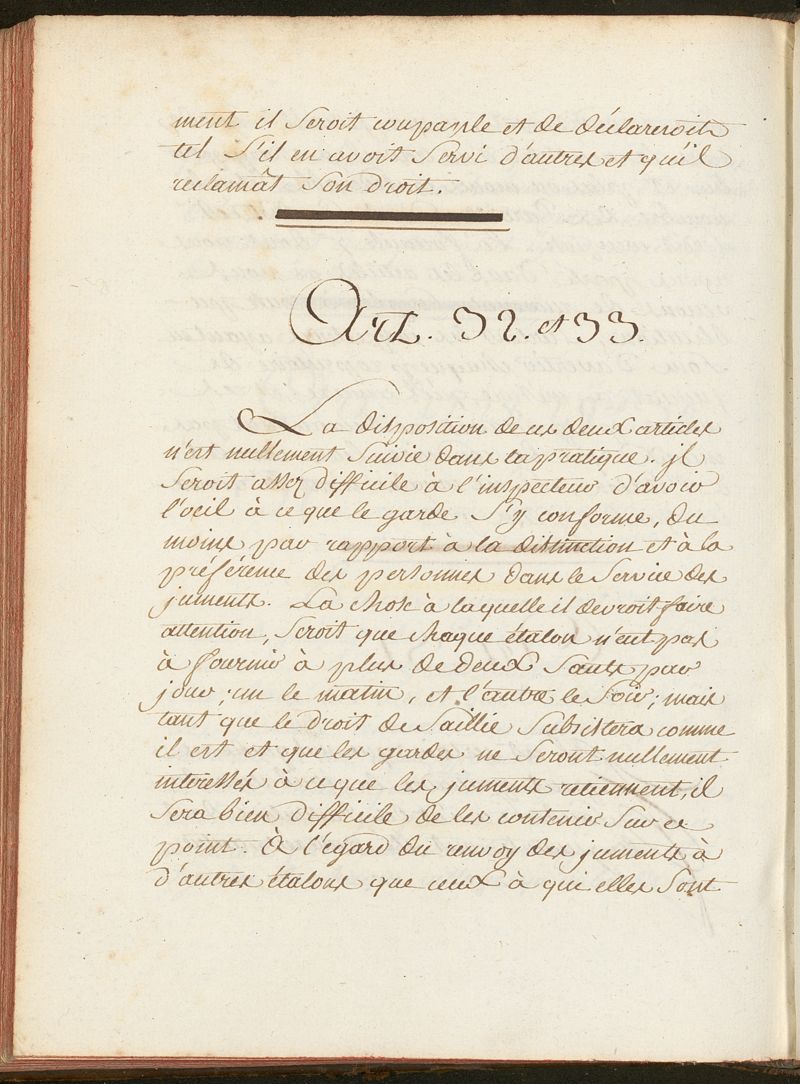 ment il seroit coupable et de déclareroit
tel s'il en avoit servi d'autres et qu'il
reclamât son droit.
Art. 32. et 33.
La disposition de ces deux articles
n'est nullement suivie dans la pratique. jl
seroit assez difficile à l'inspecteur d'avoir
l'oeil à ce que le garde s'y conforme, du
moins par rapport à la distinction et à la
préférence des personnes dans le service des
juments. La chose à laquelle il devroit faire
attention, seroit que chaque étalon n'eut pas
à fournir à plus de deux sauts par
jour, un le matin, et l'autre le soir; mais
tant que le droit de saillie subsistera comme
il est et que les gardes ne seront nullement
interessés à ce que les juments retiennent, il
sera bien difficile de les contenir sur ce
point. À l'égard du renvoy des juments à
d'autres étalons que ceux à qui elles sont